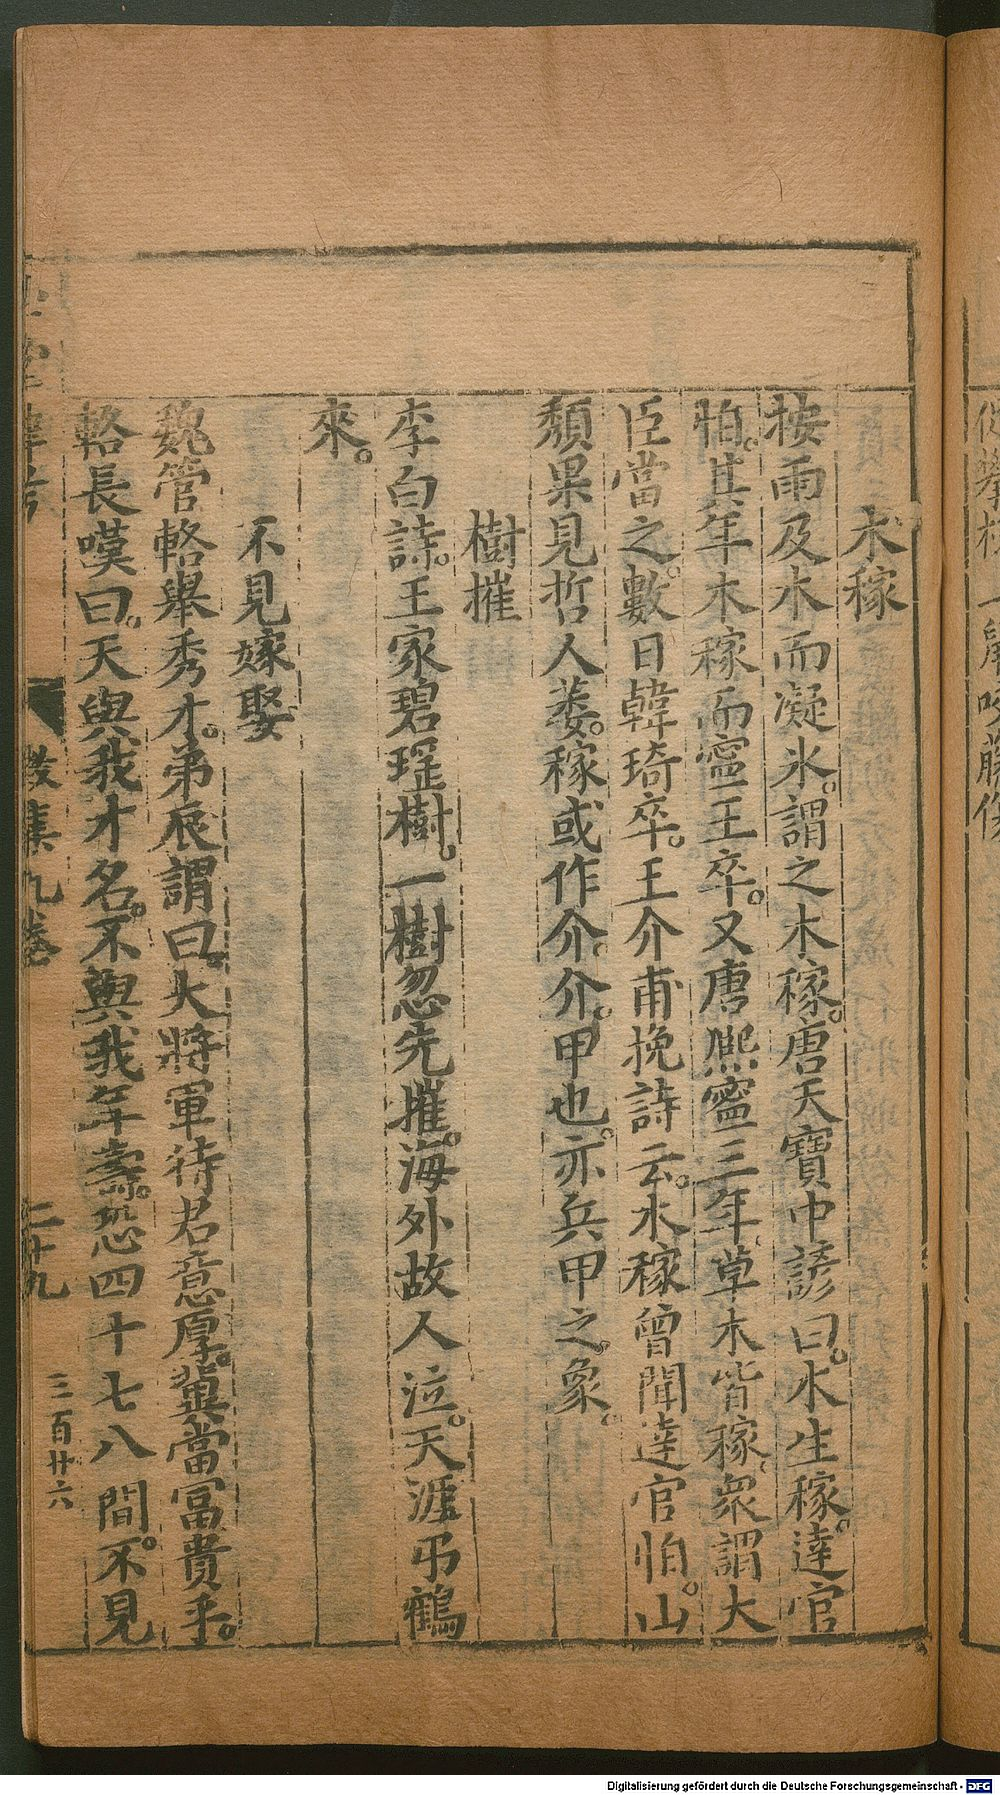 木稼
按雨及木而凝氷。謂之木稼。唐天寶中諺曰。木生稼。達官
怕。其年木稼而寧王卒。又唐熈寧三年。草木皆稼。衆謂大
臣當之。數日韓琦卒。王介甫挽詩云。木稼曾聞達官怕。山
頹果見哲人萎。稼或作介。介。甲也。亦兵甲之象。
樹摧
李白詩。王家碧瑶樹。一樹忽先摧。海外故人泣。天涯弔鶴
來。
不見嫁娶
魏管輅舉秀才。弟辰謂曰。大將軍待君意厚。冀當冨貴乎。
輅長嘆曰。天與我才名。不與我年壽。恐四十七八間。不見
集九卷
二十九
三百廿六
Digitalisierung gefördert durch die Deutsche Forschungsgemeinschaft - DFG